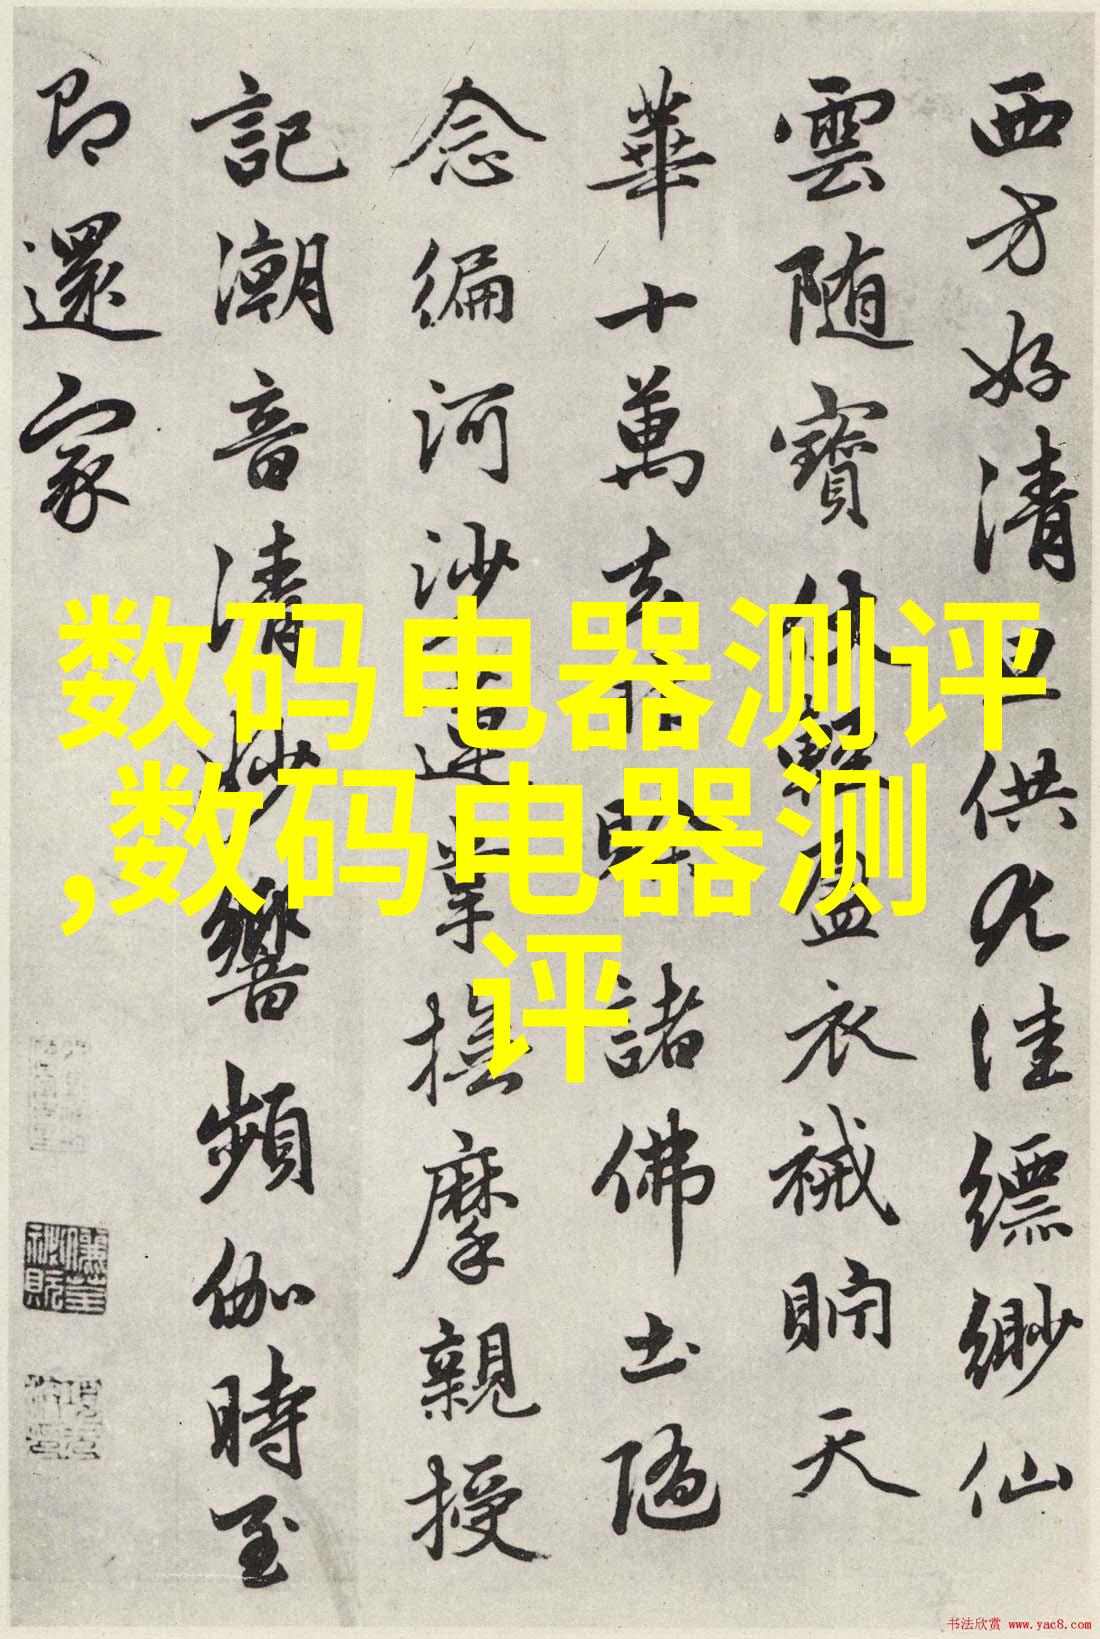 西方好清旦供尤佳縹緲仙
雲随寶輕盈衣裓貯天
華十萬去諸佛土隨
念編河沙蓮掌撫摩親授
記潮音清妙響頻伽時至
即還家
数码电器测评
,数码电器测
评
书法欣赏 www.yac8.com